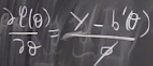 ∂ℓ(θ)/∂θ = (y - b'(θ))/φ